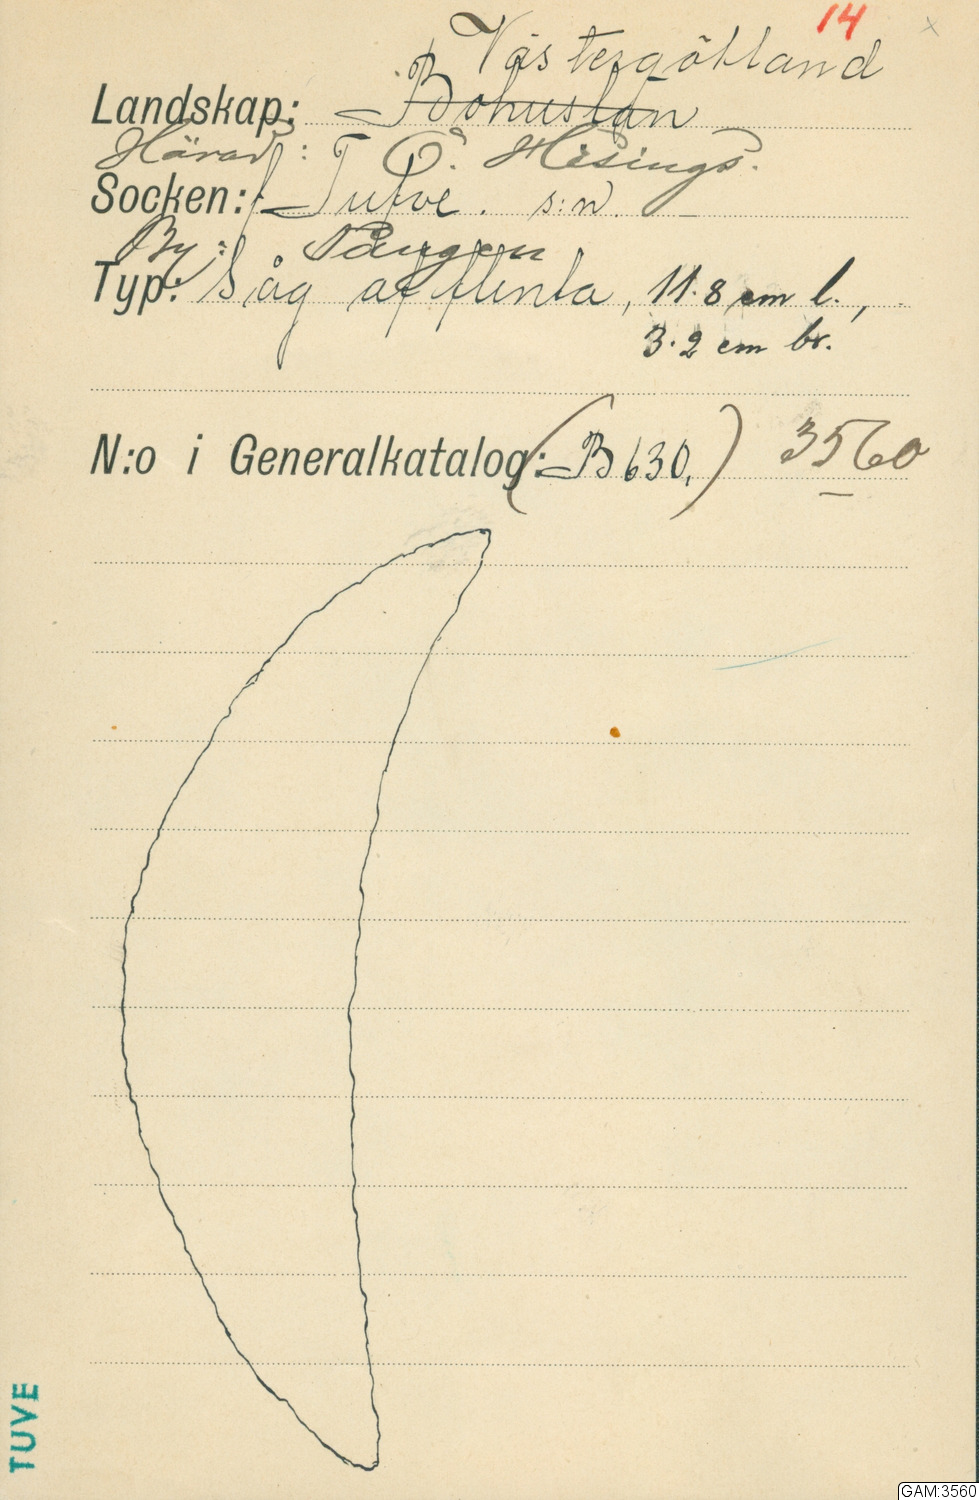 14
Västergötland
Landskap: Bohuslän
Härad: Ö. Hisings.
Socken: Tufve. s:n.
By:
Typ: Såg af flinta, 11.8 cm l.,
3.2 cm br.
N:o i Generalkatalog: (B 630.) 3560
TUVE
GAM:3560